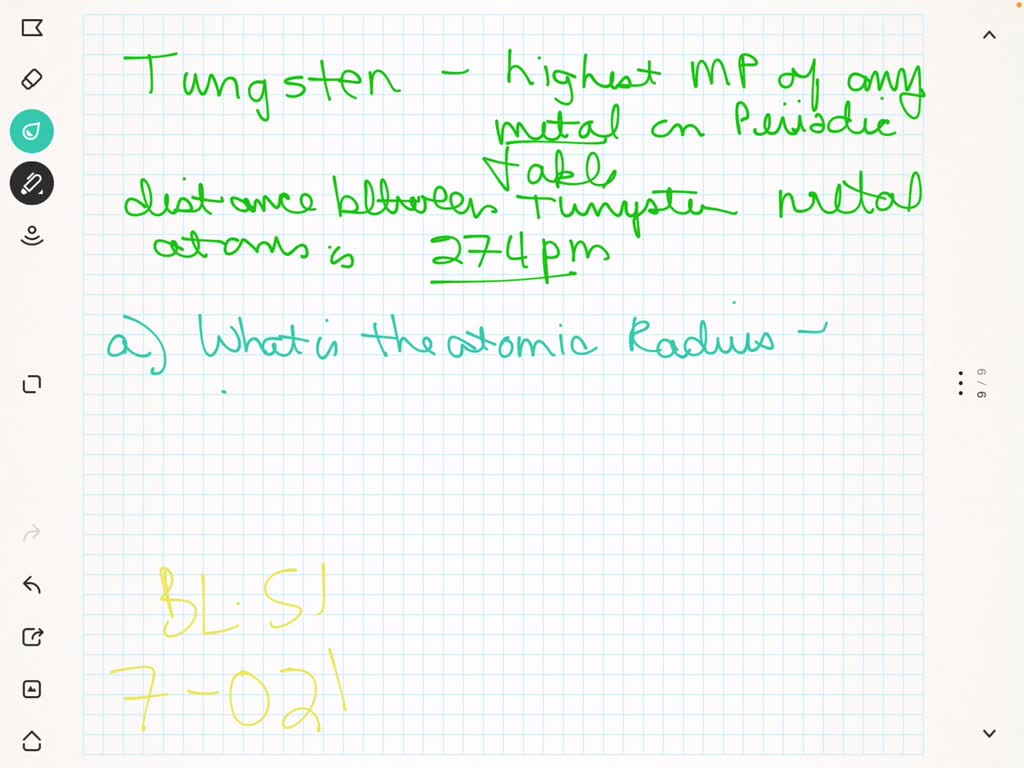 Tungsten - highest MP of any
metal on Periodic
table
distance between Tungsten metal
atoms is 274pm
a) What is the atomic Radius -
BL. SI
7-021
6/9